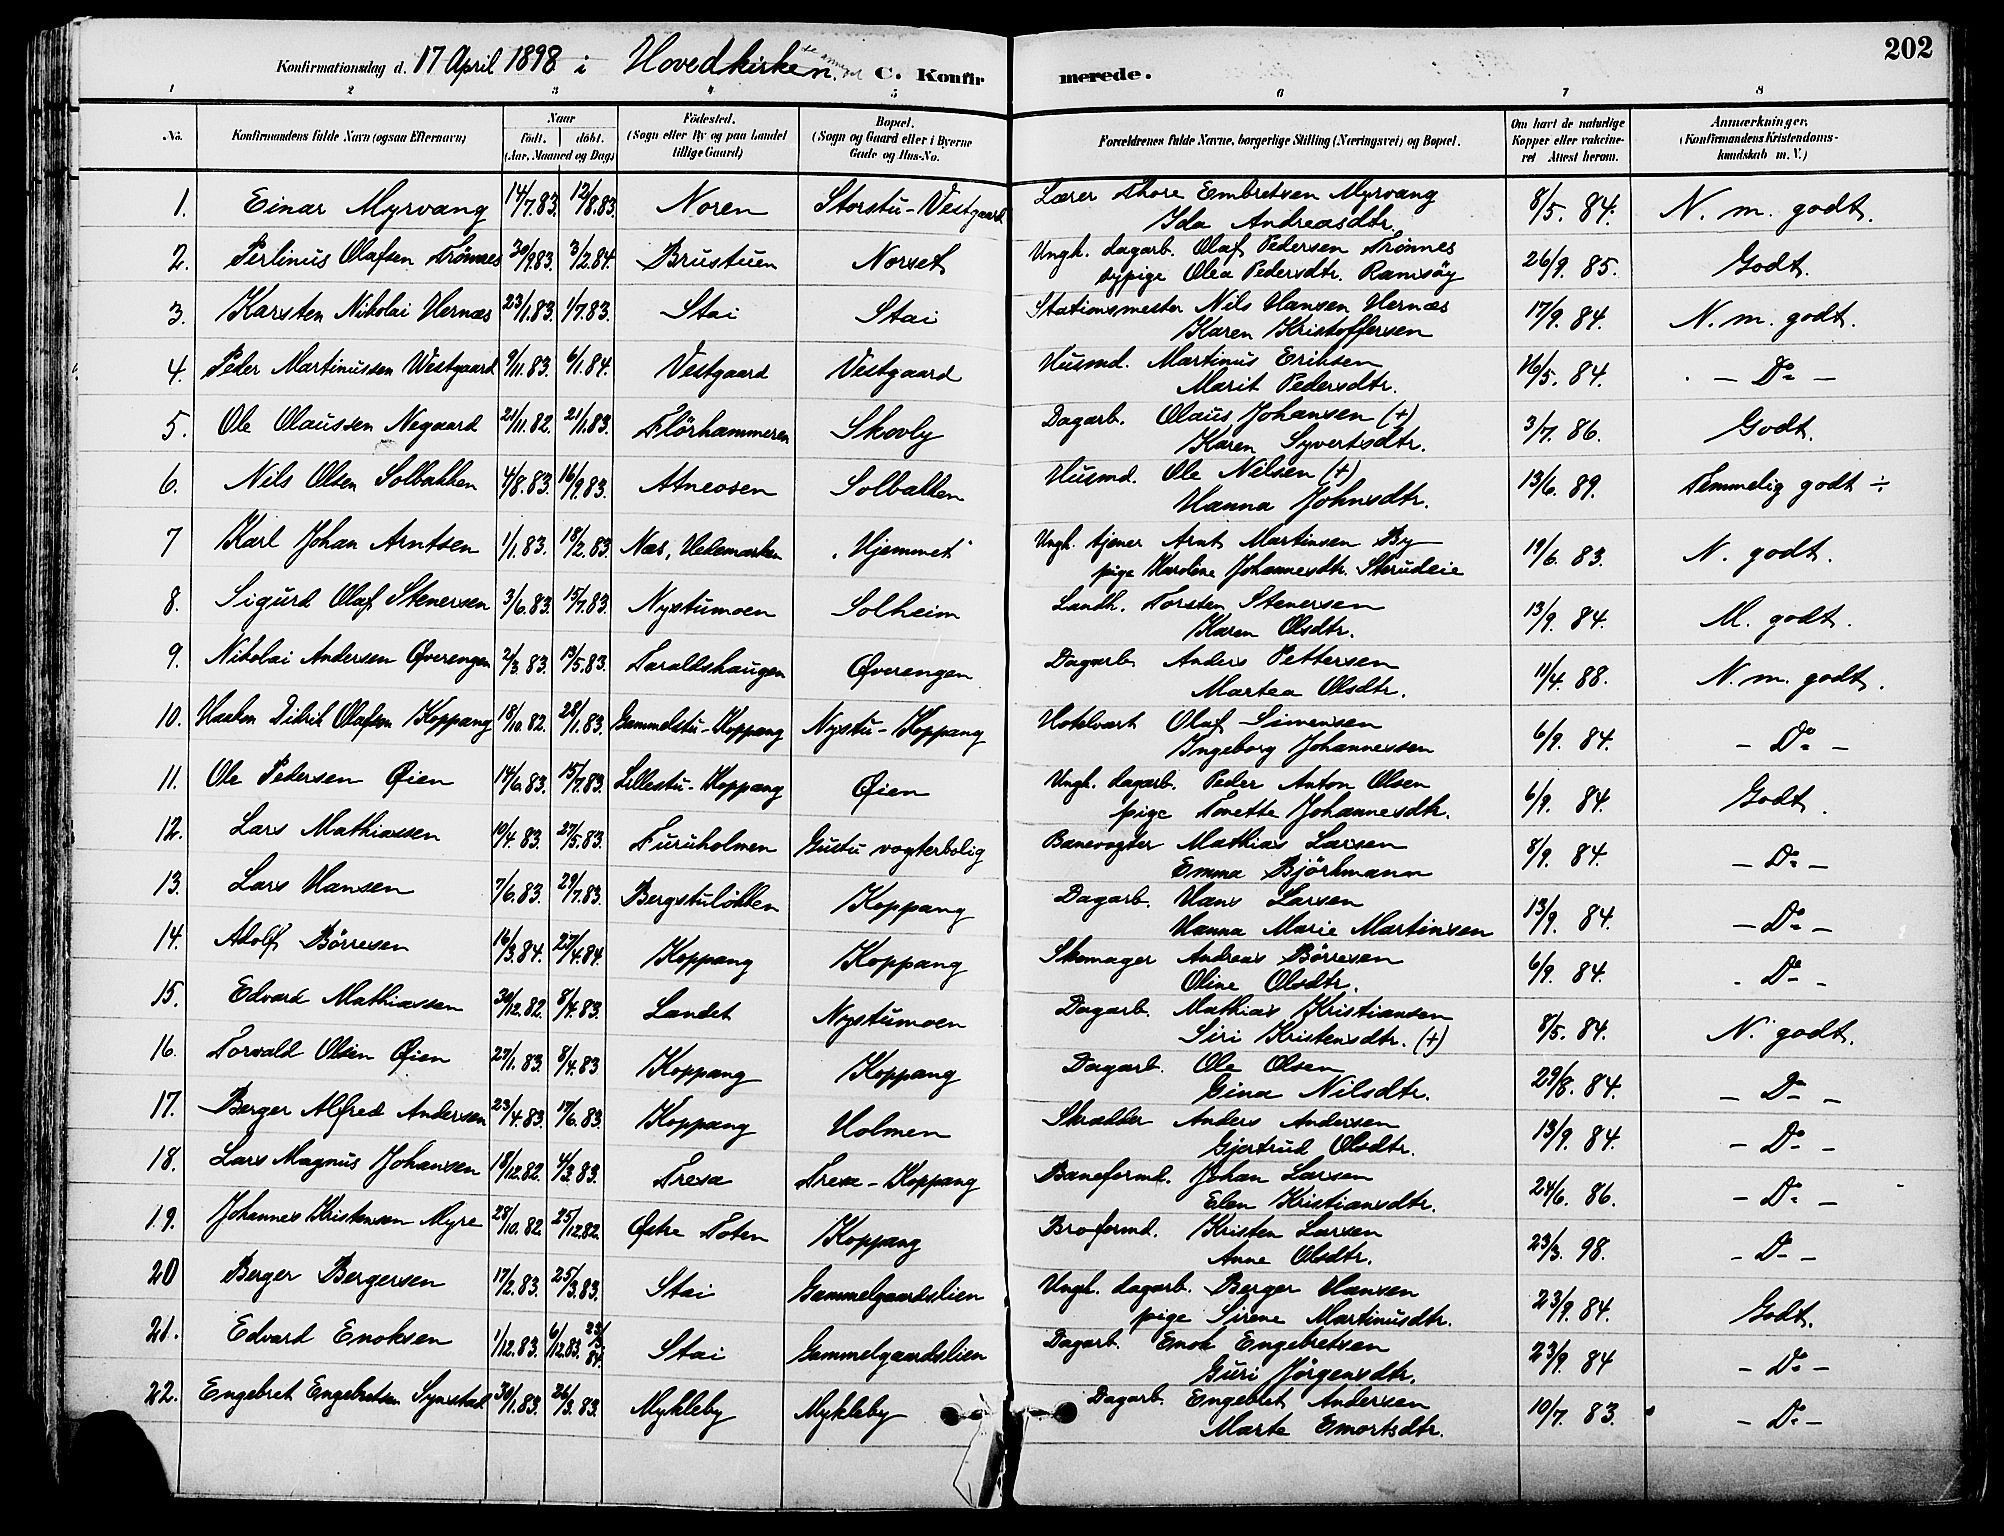 202
Konfirmationsdag d. 17 April 1898 i Hovedkirken. C. Konfirmerede.
1 2 3 4 5 6 7 8
No. Konfirmandens fulde Navn (ogsaa Efternavn) Naar født. døbt. (Aar, Maaned og Dag) Fødested. (Sogn eller By og paa Landet tillige Gaard) Bopæl. (Sogn og Gaard eller i Byerne Gade og Hus-No. Forældrenes fulde Navne, borgerlige Stilling (Næringsvei) og Bopæl. Om havt de naturlige Kopper eller vakcineret Attest herom. Anmærkninger. (Konfirmandens Kristendomskundskab m. V.)
1. Einar Myrvang 14/7.83. 12/8.83. Noren Storstu-Vestgaard Lærer Thore Embretsen Myrvang 8/5. 84. N. m. godt.
Ida Andreasdtr.
2. Perlinus Olafsen Trønnes 30/9.83. 3/2.84. Brustuen Norset Ungk. dagarb. Olaf Pedersen Trønnes 26/9. 85. Godt.
sypige Olea Pedersdtr. Ramsöy
3. Karsten Nikolai Hernæs 23/1.83. 1/7.83. Stai Stai Stationsmester Nils Hansen Hernæs 17/9. 84. N. m. godt.
Karen Kristoffersen
4. Peder Martinussen Westgaard 9/11.83. 6/1.84. Vestgaard Vestgaard Husmd. Martinus Eriksen 16/5. 84. - Do -
Marit Pedersdtr.
5. Ole Olaussen Negaard 21/11.82. 21/1.83. Flörhammeren Skovly Dagarb. Olaus Johansen (+) 3/7. 86. Godt.
Karen Syvertsdtr.
6. Nils Olsen Solbakken 4/8.83. 16/9.83. Atneosen Solbakken Husmd. Ole Nilsen (+) 13/6. 89. Temmelig godt ÷
Hanna Johnsdtr.
7 Karl Johan Arntsen 1/1.83. 18/2.83. Næs, Hedemarken "Hjemmet" Ungk. tjener Arnt Martinsen By 19/6. 83. N. godt.
pige Karoline Johannesdtr. Skrudeie
8. Sigurd Olaf Stenersen 3/6.83. 15/7.83. Nystumoen Solheim Landh. Torsten Stenersen 13/9. 84. M. godt.
Karen Olsdtr.
9. Nikolai Andersen Øverengen 2/3.83. 13/5.83. Taraldshaugen Øverengen Dagarb. Anders Pettersen 11/4. 88. N. m. godt.
Martea Olsdtr.
10. Haakon Didrik Olafsen Koppang 18/10.82. 28/1.83. Gammelstu-Koppang Nystu-Koppang Hotelvært Olaf Simensen 6/9. 84. - Do -
Ingeborg Johannessen
11. Ole Pedersen Øien 14/6.83. 15/7.83. Lillestu-Koppang Øien Ungk. dagarb. Peder Anton Olsen 6/9. 84. Godt.
pige Tonette Johannesdtr.
12. Lars Mathiassen 10/4.83. 27/5.83. Furuholmen Gustu vogterbolig Banevogter Mathias Larsen 8/9. 84. - Do -
Emma Björkmann
13. Lars Hansen 7/6.83. 29/7.83. Bergstulökken Koppang Dagarb. Hans Larsen 13/9. 84. - Do -
Hanna Marie Martinsen
14. Adolf Børresen 16/3.84. 27/4.84. Koppang Koppang Skomager Andreas Børresen 6/9. 84. - Do -
Oline Olsdtr.
15. Edvard Mathiassen 30/12.82. 8/4.83. Landet Nystumoen Dagarb. Mathias Kristiansen 8/5. 84. N. godt.
Siri Kristensdtr. (+)
16. Torvald Olsen Øien 27/1.83. 8/4.83 Koppang Koppang Dagarb. Ole Olsen 29/8. 84. - Do -
Gina Nilsdtr.
17. Berger Alfred Andersen 23/4.83. 17/6.83. Koppang Holmen Skrædder Anders Andersen 13/9. 84. - Do -
Gjertrud Olsdtr.
18. Lars Magnus Johansen 18/12.82. 4/3.83. Trexa Trexa-Koppang Baneformd. Johan Larsen 24/6. 86. - Do -
Elen Kristiansdtr.
19. Johannes Kristensen Myre 28/10.82. 25/12.82. Østre Toten Koppang Broformd. Kristen Larsen 23/3. 98. - Do -
Anne Olsdtr.
20 Berger Bergersen 17/2.83. 25/3.83. Stai Gammelgaardslien Ungk. dagarb. Berger Hansen 23/9. 84. Godt.
pige Sirene Martinusdtr.
21. Edvard Enoksen 1/12.83. 6/12.83. 23/3 84. Stai Gammelgaardslien Dagarb. Enok Engebretsen 23/9 84 - Do -
Guri Jørgensdtr.
22. Engebret Engebretsen 30/1.83. 26/3.83. Mykleby Mykleby Dagarb. Engebret Andersen 10/7. 83. - Do -
Marte Emortsdtr.